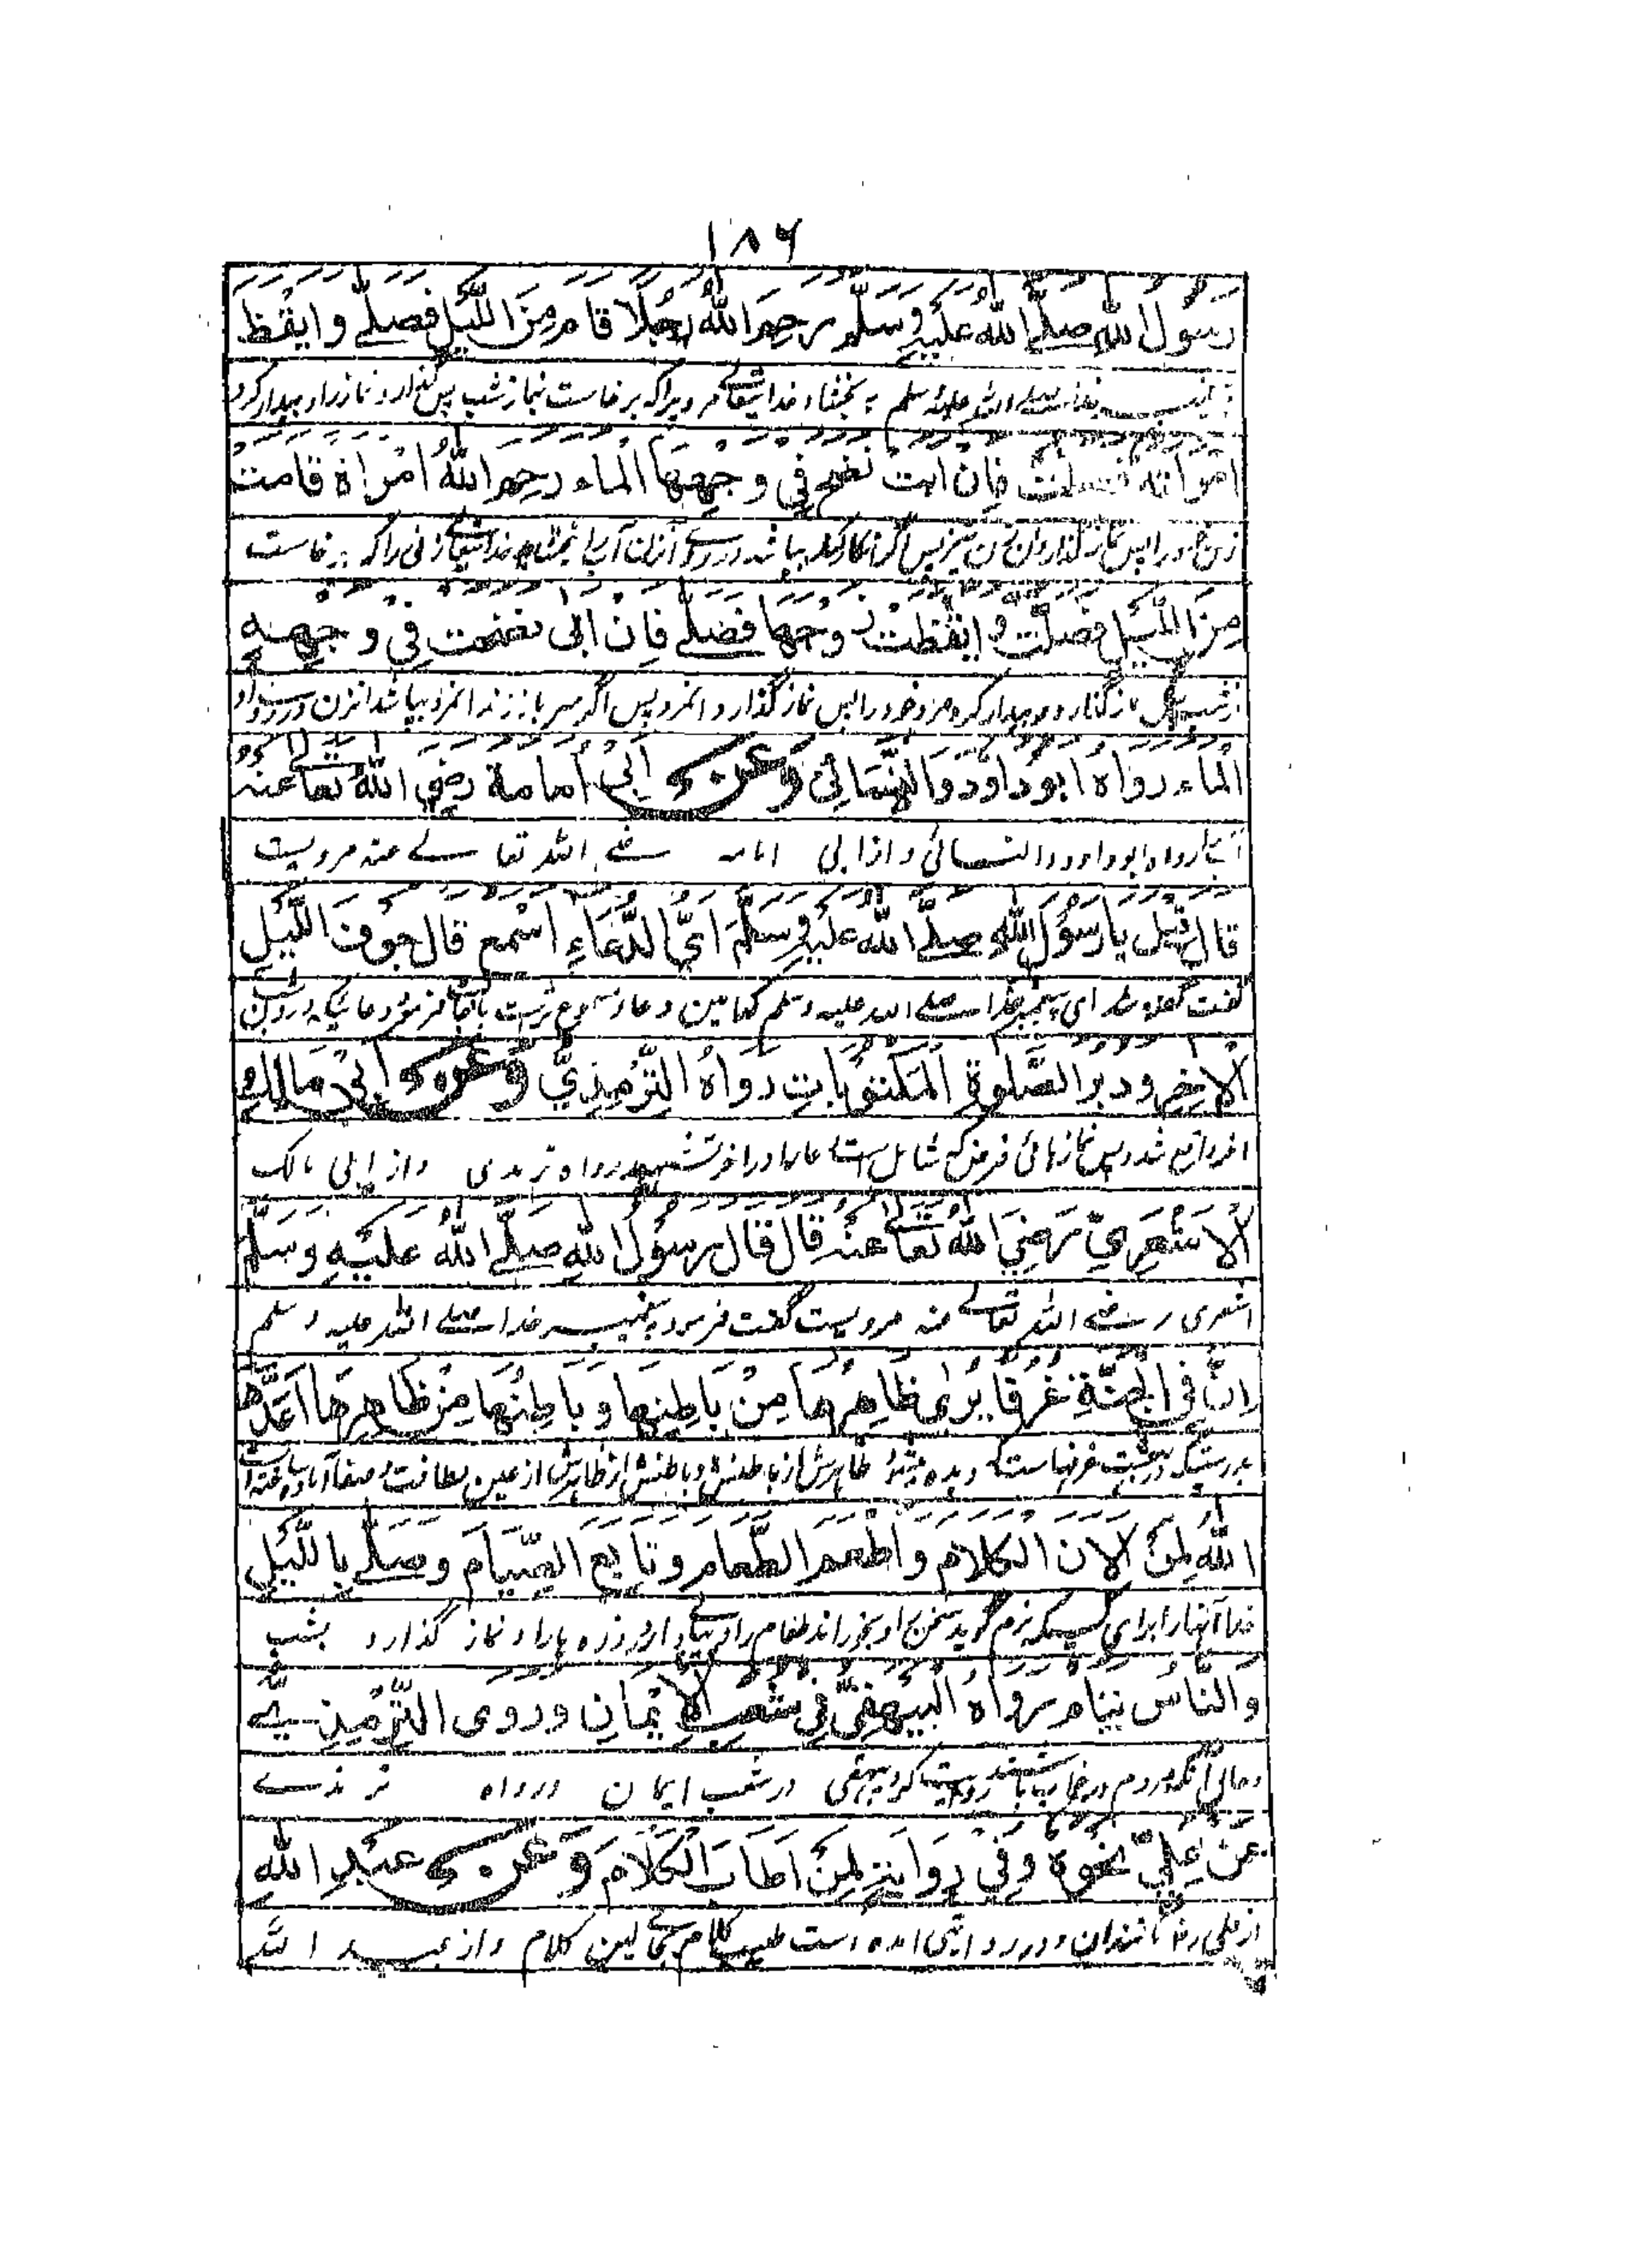 ۱۸۶
رسول الله صلے الله علیه وسلم رحم الله رجلا قام من اللیل فصلے وایقظ
صلے الله علیه وسلم به بخشاد خدا مر ویرا که برخاست نماز شب پس گذارد نماز را و بیدار کرد
امراته فصلت فان ابت نضح فی وجهها الماء رحم الله امراة قامت
را پس نماز گذارد آن زن نیز پس اگر بپاشد در روی آنزن آب را خدا زنی را که برخاست
من اللیل فصلت وایقظت زوجها فصلے فان ابی نضحت فی وجهه
نماز گذارد و بیدار کرد مرد خود را پس نماز گذارد آنمرد پس اگر سر باز زند آنمرد بپاشد آنزن در روی او
الماء رواه ابو داود والنسائی وعن ابی امامة رضی الله تعالے عنه
آب را رواه ابو داود والنسائی و از ابی امامه رضے الله تعالے عنه مرویست
قال قیل یا رسول الله صلے الله علیه وسلم ای الدعاء اسمع قال جوف اللیل
گفت گفته شد ای پیغمبر خدا صلے الله علیه وسلم کدامین دعا فرمود دعائیکه در
الاخر ودبر الصلوة المکتوبات رواه الترمذی وعن ابی مالك
آخر واقع شد و پس نمازهائی فرض که شامل است رواه ترمذی و از ابی مالک
الاشعری رضی الله تعالے عنه قال قال رسول الله صلے الله علیه وسلم
اشعری رضے الله تعالے عنه مرویست گفت فرمود پیغمبر خدا صلے الله علیه و سلم
ان فی الجنة غرفا یری ظاهرها من باطنها وباطنها من ظاهرها اعدها
بدرستیکه در بهشت غرفهاست که دیده میشود ظاهرش از باطنش و باطنش از ظاهرش از عین لطافت و صفا
الله لمن الان الکلام واطعم الطعام وتابع الصیام وصلے باللیل
خدا آنها را برای کسیکه نرم گوید سخن را و بخوراند طعام را و روزه ها را و نماز گذارد بشب
والناس نیام رواه البیهقی فی شعب الایمان وروی الترمذی
و حال آنکه مردم در خواب باشند روایت کرد بیهقی در شعب ایمان ورواه ترمذے
عن علی نحوه وفی روایته لمن اطاب الکلام وعن عبد الله
از علی رض مانند آن و در روایتی آمده است کلام بجای لین کلام و از عبد الله